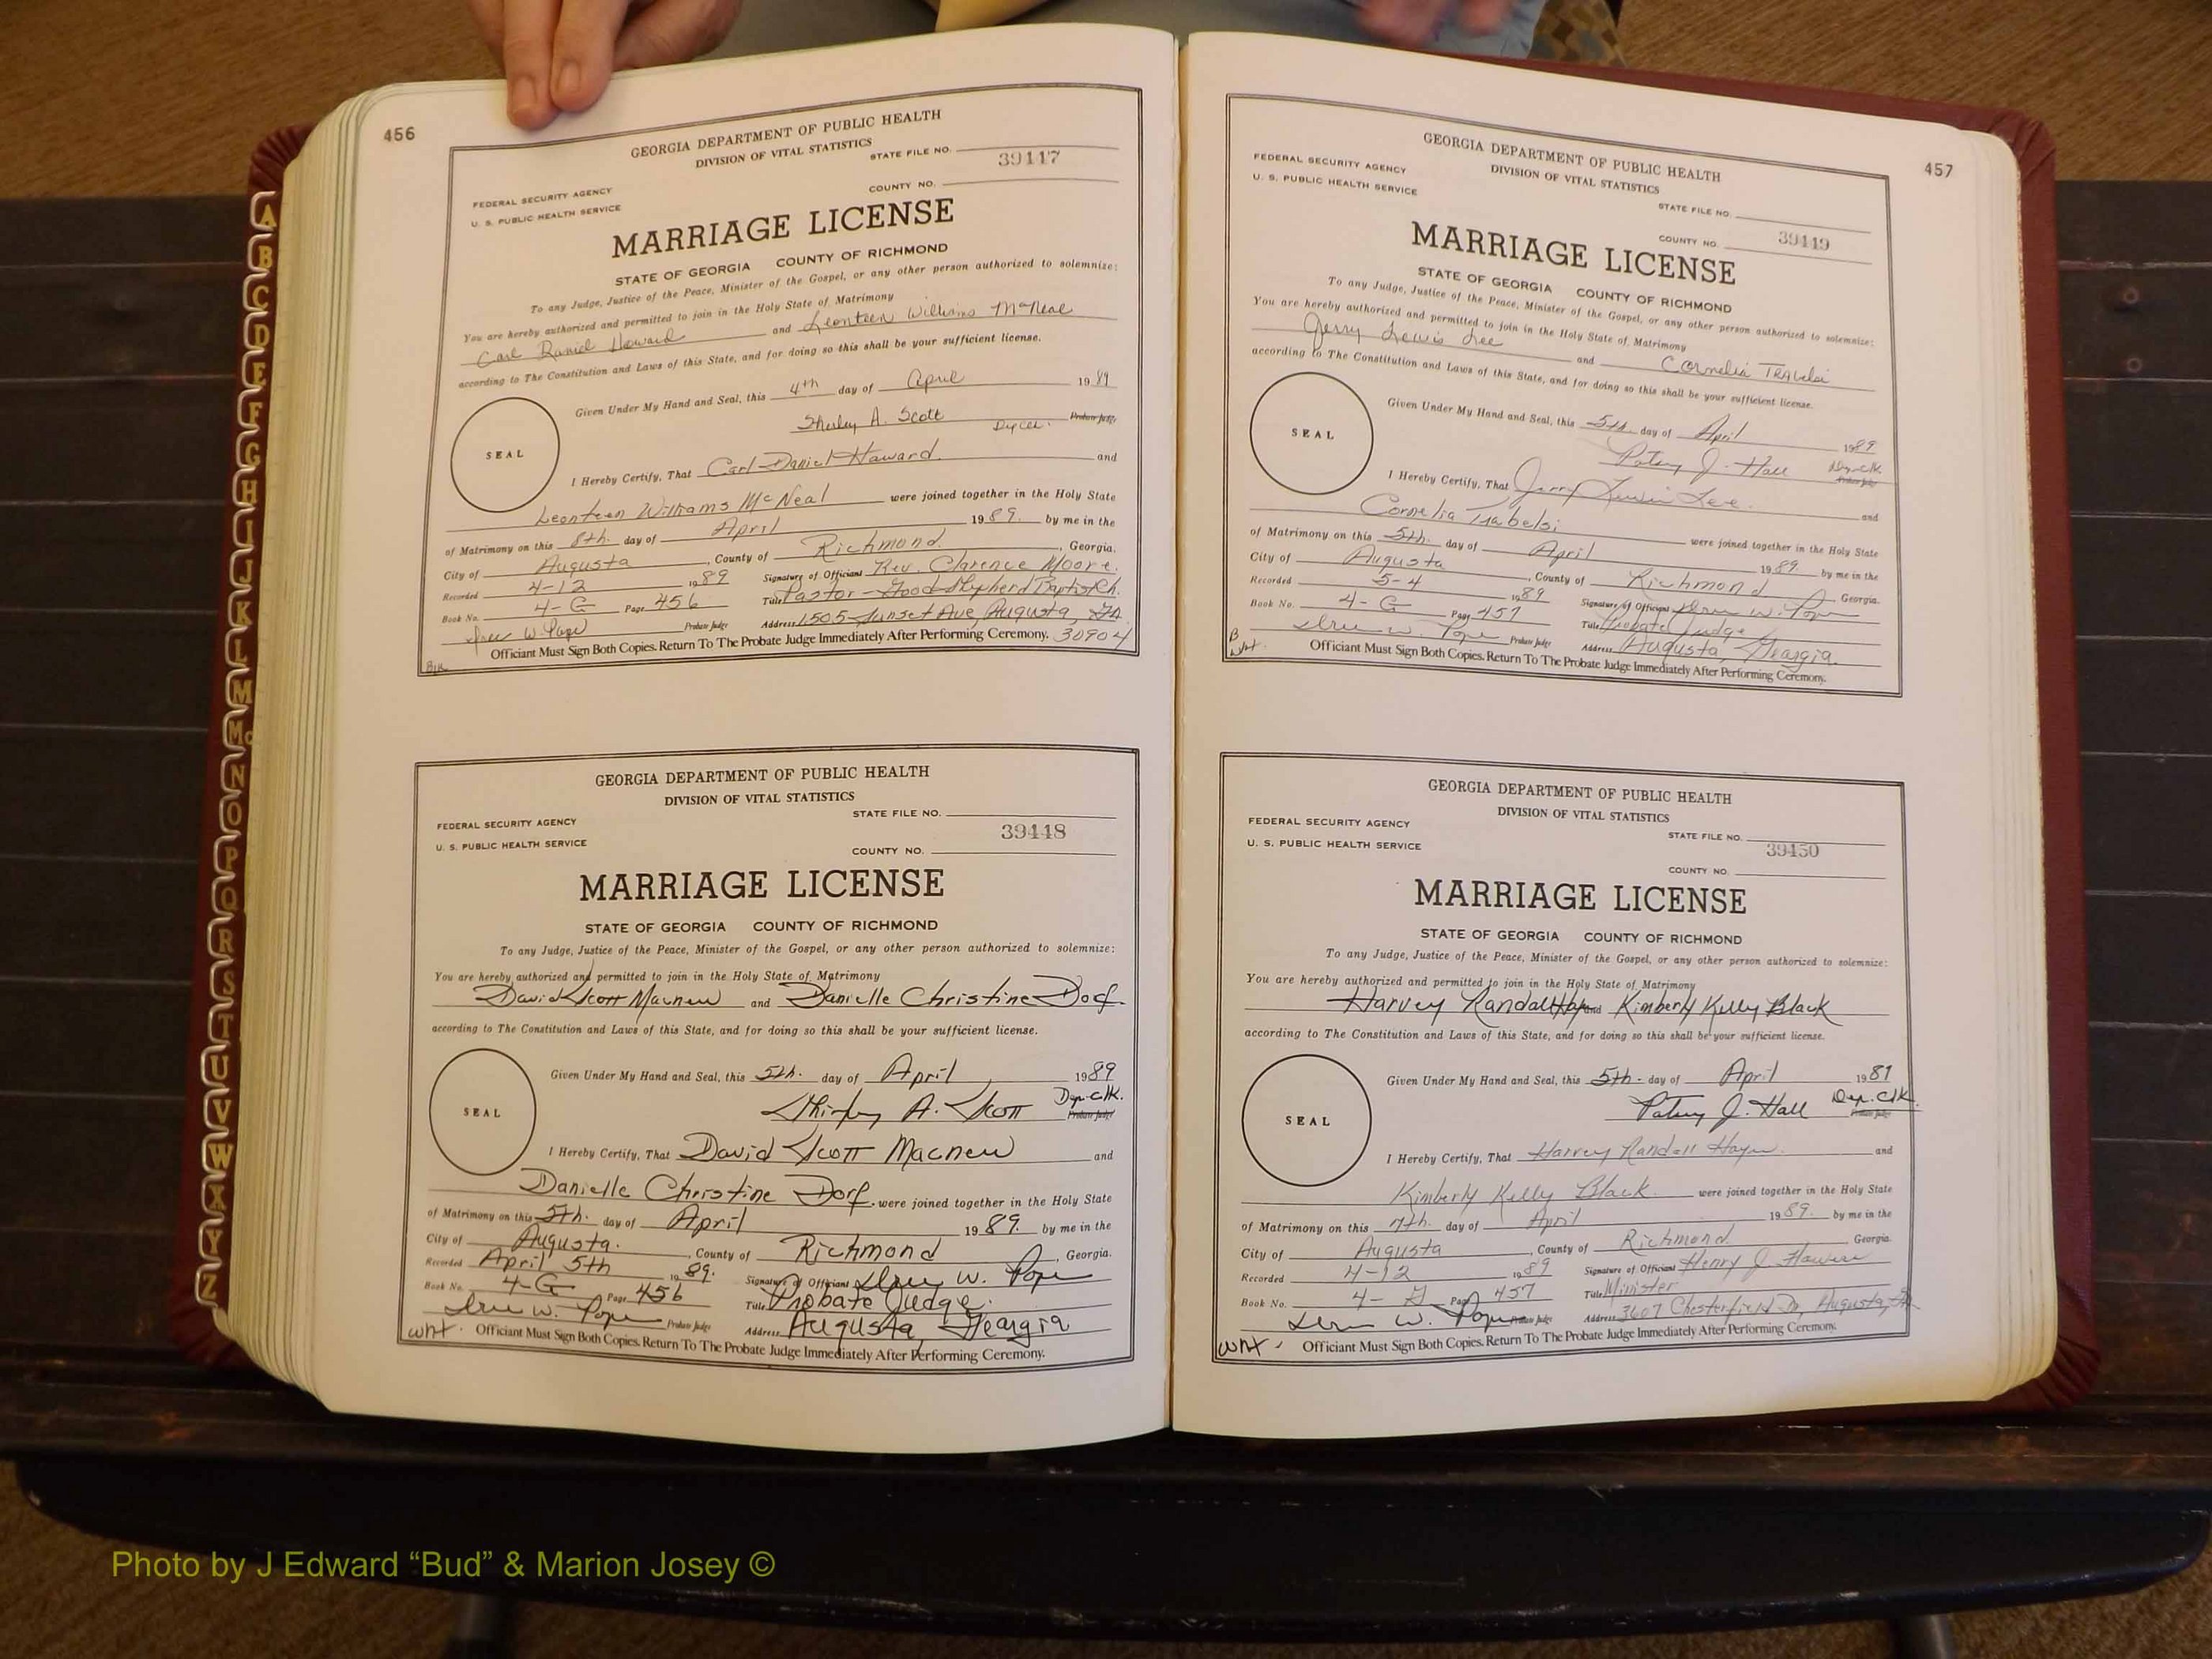 456
GEORGIA DEPARTMENT OF PUBLIC HEALTH
DIVISION OF VITAL STATISTICS
STATE FILE NO.
39447
FEDERAL SECURITY AGENCY
COUNTY NO.
U. S. PUBLIC HEALTH SERVICE
MARRIAGE LICENSE
STATE OF GEORGIA COUNTY OF RICHMOND
To any Judge, Justice of the Peace, Minister of the Gospel, or any other person authorized to solemnize:
You are hereby authorized and permitted to join in the Holy State of Matrimony
Carl Daniel Howard and Leonteen Williams McNeal
according to The Constitution and Laws of this State, and for doing so this shall be your sufficient license.
Given Under My Hand and Seal, this 4th day of April 1989
Shirley A. Scott Dep Clk. Probate Judge
SEAL
I Hereby Certify, That Carl Daniel Howard and
Leonteen Williams McNeal were joined together in the Holy State
of Matrimony on this 8th. day of April 1989. by me in the
City of Augusta, County of Richmond, Georgia.
Recorded 4-12 1989 Signature of Officiant Rev. Clarence Moore.
Book No. 4-G Page 456 Title Pastor - Good Shepherd Baptist Ch.
W. Pope Probate Judge Address 1505 Sunset Ave, Augusta, GA.
Officiant Must Sign Both Copies. Return To The Probate Judge Immediately After Performing Ceremony. 30904
Blk.
GEORGIA DEPARTMENT OF PUBLIC HEALTH
DIVISION OF VITAL STATISTICS
STATE FILE NO.
FEDERAL SECURITY AGENCY
39448
U. S. PUBLIC HEALTH SERVICE
COUNTY NO.
MARRIAGE LICENSE
STATE OF GEORGIA COUNTY OF RICHMOND
To any Judge, Justice of the Peace, Minister of the Gospel, or any other person authorized to solemnize:
You are hereby authorized and permitted to join in the Holy State of Matrimony
David Scott Macnew and Danielle Christine Dorf
according to The Constitution and Laws of this State, and for doing so this shall be your sufficient license.
Given Under My Hand and Seal, this 5th. day of April 1989
Shirley A. Scott Dep-Clk. Probate Judge
SEAL
I Hereby Certify, That David Scott Macnew and
Danielle Christine Dorf were joined together in the Holy State
of Matrimony on this 5th. day of April 1989. by me in the
City of Augusta. County of Richmond, Georgia.
Recorded April 5th 1989. Signature of Officiant W. Pope
Book No. 4-G Page 456 Title Probate Judge.
W. Pope Probate Judge Address Augusta, Georgia
wht. Officiant Must Sign Both Copies. Return To The Probate Judge Immediately After Performing Ceremony.
457
GEORGIA DEPARTMENT OF PUBLIC HEALTH
DIVISION OF VITAL STATISTICS
FEDERAL SECURITY AGENCY
U. S. PUBLIC HEALTH SERVICE
STATE FILE NO.
COUNTY NO. 39449
MARRIAGE LICENSE
STATE OF GEORGIA COUNTY OF RICHMOND
To any Judge, Justice of the Peace, Minister of the Gospel, or any other person authorized to solemnize:
You are hereby authorized and permitted to join in the Holy State of Matrimony
Jerry Lewis Lee and Cornelia Trabelsi
according to The Constitution and Laws of this State, and for doing so this shall be your sufficient license.
Given Under My Hand and Seal, this 5th. day of April 1989
Patsy J. Hall Dep-Clk. Probate Judge
SEAL
I Hereby Certify, That Jerry Lewis Lee. and
Cornelia Trabelsi were joined together in the Holy State
of Matrimony on this 5th. day of April 1989. by me in the
City of Augusta, County of Richmond, Georgia.
Recorded 5-4 1989 Signature of Officiant W. Pope
Book No. 4-G Page 457 Title Probate Judge
W. Pope Probate Judge Address Augusta, Georgia.
wht. Officiant Must Sign Both Copies. Return To The Probate Judge Immediately After Performing Ceremony.
GEORGIA DEPARTMENT OF PUBLIC HEALTH
DIVISION OF VITAL STATISTICS
FEDERAL SECURITY AGENCY
STATE FILE NO.
U. S. PUBLIC HEALTH SERVICE
39450
COUNTY NO.
MARRIAGE LICENSE
STATE OF GEORGIA COUNTY OF RICHMOND
To any Judge, Justice of the Peace, Minister of the Gospel, or any other person authorized to solemnize:
You are hereby authorized and permitted to join in the Holy State of Matrimony
Harvey Randall and Kimberly Kelly Black
according to The Constitution and Laws of this State, and for doing so this shall be your sufficient license.
Given Under My Hand and Seal, this 5th- day of April 1989
Patsy J. Hall Dep. Clk. Probate Judge
SEAL
I Hereby Certify, That Harvey Randall and
Kimberly Kelly Black were joined together in the Holy State
of Matrimony on this 7th. day of April 1989. by me in the
City of Augusta, County of Richmond Georgia.
Recorded 4-12 1989 Signature of Officiant Henry J.
Book No. 4-G Page 457 Title Minister
W. Pope Probate Judge Address 3607 Chesterfield Dr, Augusta, Ga
wht. Officiant Must Sign Both Copies. Return To The Probate Judge Immediately After Performing Ceremony.
A
B
C
D
E
F
G
H
I
J
K
L
M
Mc
N
O
P
Q
R
S
T
U
V
W
X
Y
Z
Photo by J Edward “Bud” & Marion Josey ©